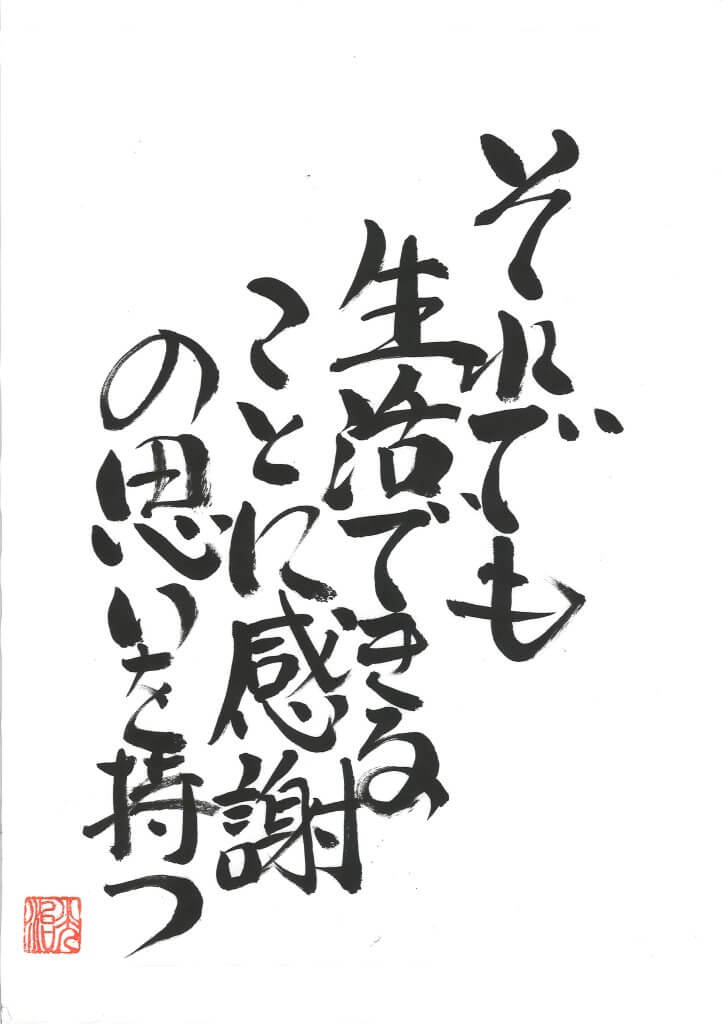 それでも
生活できる
ことに感謝
の思いを持つ